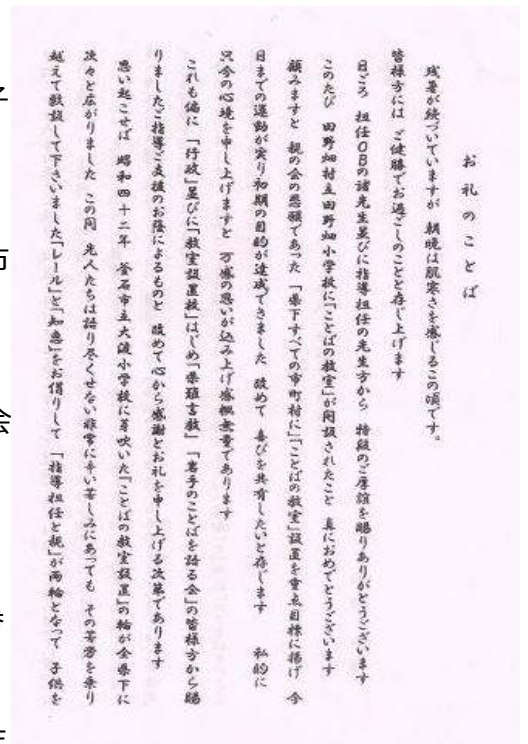 お礼のことば
残暑が続づいていますが 朝晩は肌寒さを感じるこの頃です。
皆様方には ご健勝でお過ごしのことと存じ上げます
日ごろ 担任OBの諸先生並びに指導担任の先生方から 特段のご厚誼を賜りありがとうございます
このたび 田野畑村立田野畑小学校に「ことばの教室」が開設されたこと 真におめでとうございます
顧みますと 親の会の悲願であった 「県下すべての市町村に」「ことばの教室」設置を重点目標に掲げ 今
日までの運動が実り初期の目的が達成できました 改めて 喜びを共有したいと存じます 私的に
只今の心境を申し上げますと 万感の思いが込み上げ感慨無量であります
これも偏に 「行政」並びに「教室設置校」はじめ「県難言教」 「岩手のことばを語る会」の皆様方から賜
りましたご指導ご支援のお陰によるものと 改めて心から感謝とお礼を申し上げる次第であります
思い起こせば 昭和四十二年 釜石市立大渡小学校に芽吹いた「ことばの教室設置」の輪が全県下に
次々と広がりました この間 先人たちは語り尽くせない非常に辛い苦しみにあっても その苦労を乗り
越えて敷設して下さいました「レール」と「知恵」をお借りして 「指導担任と親」が両輪となって 子供を